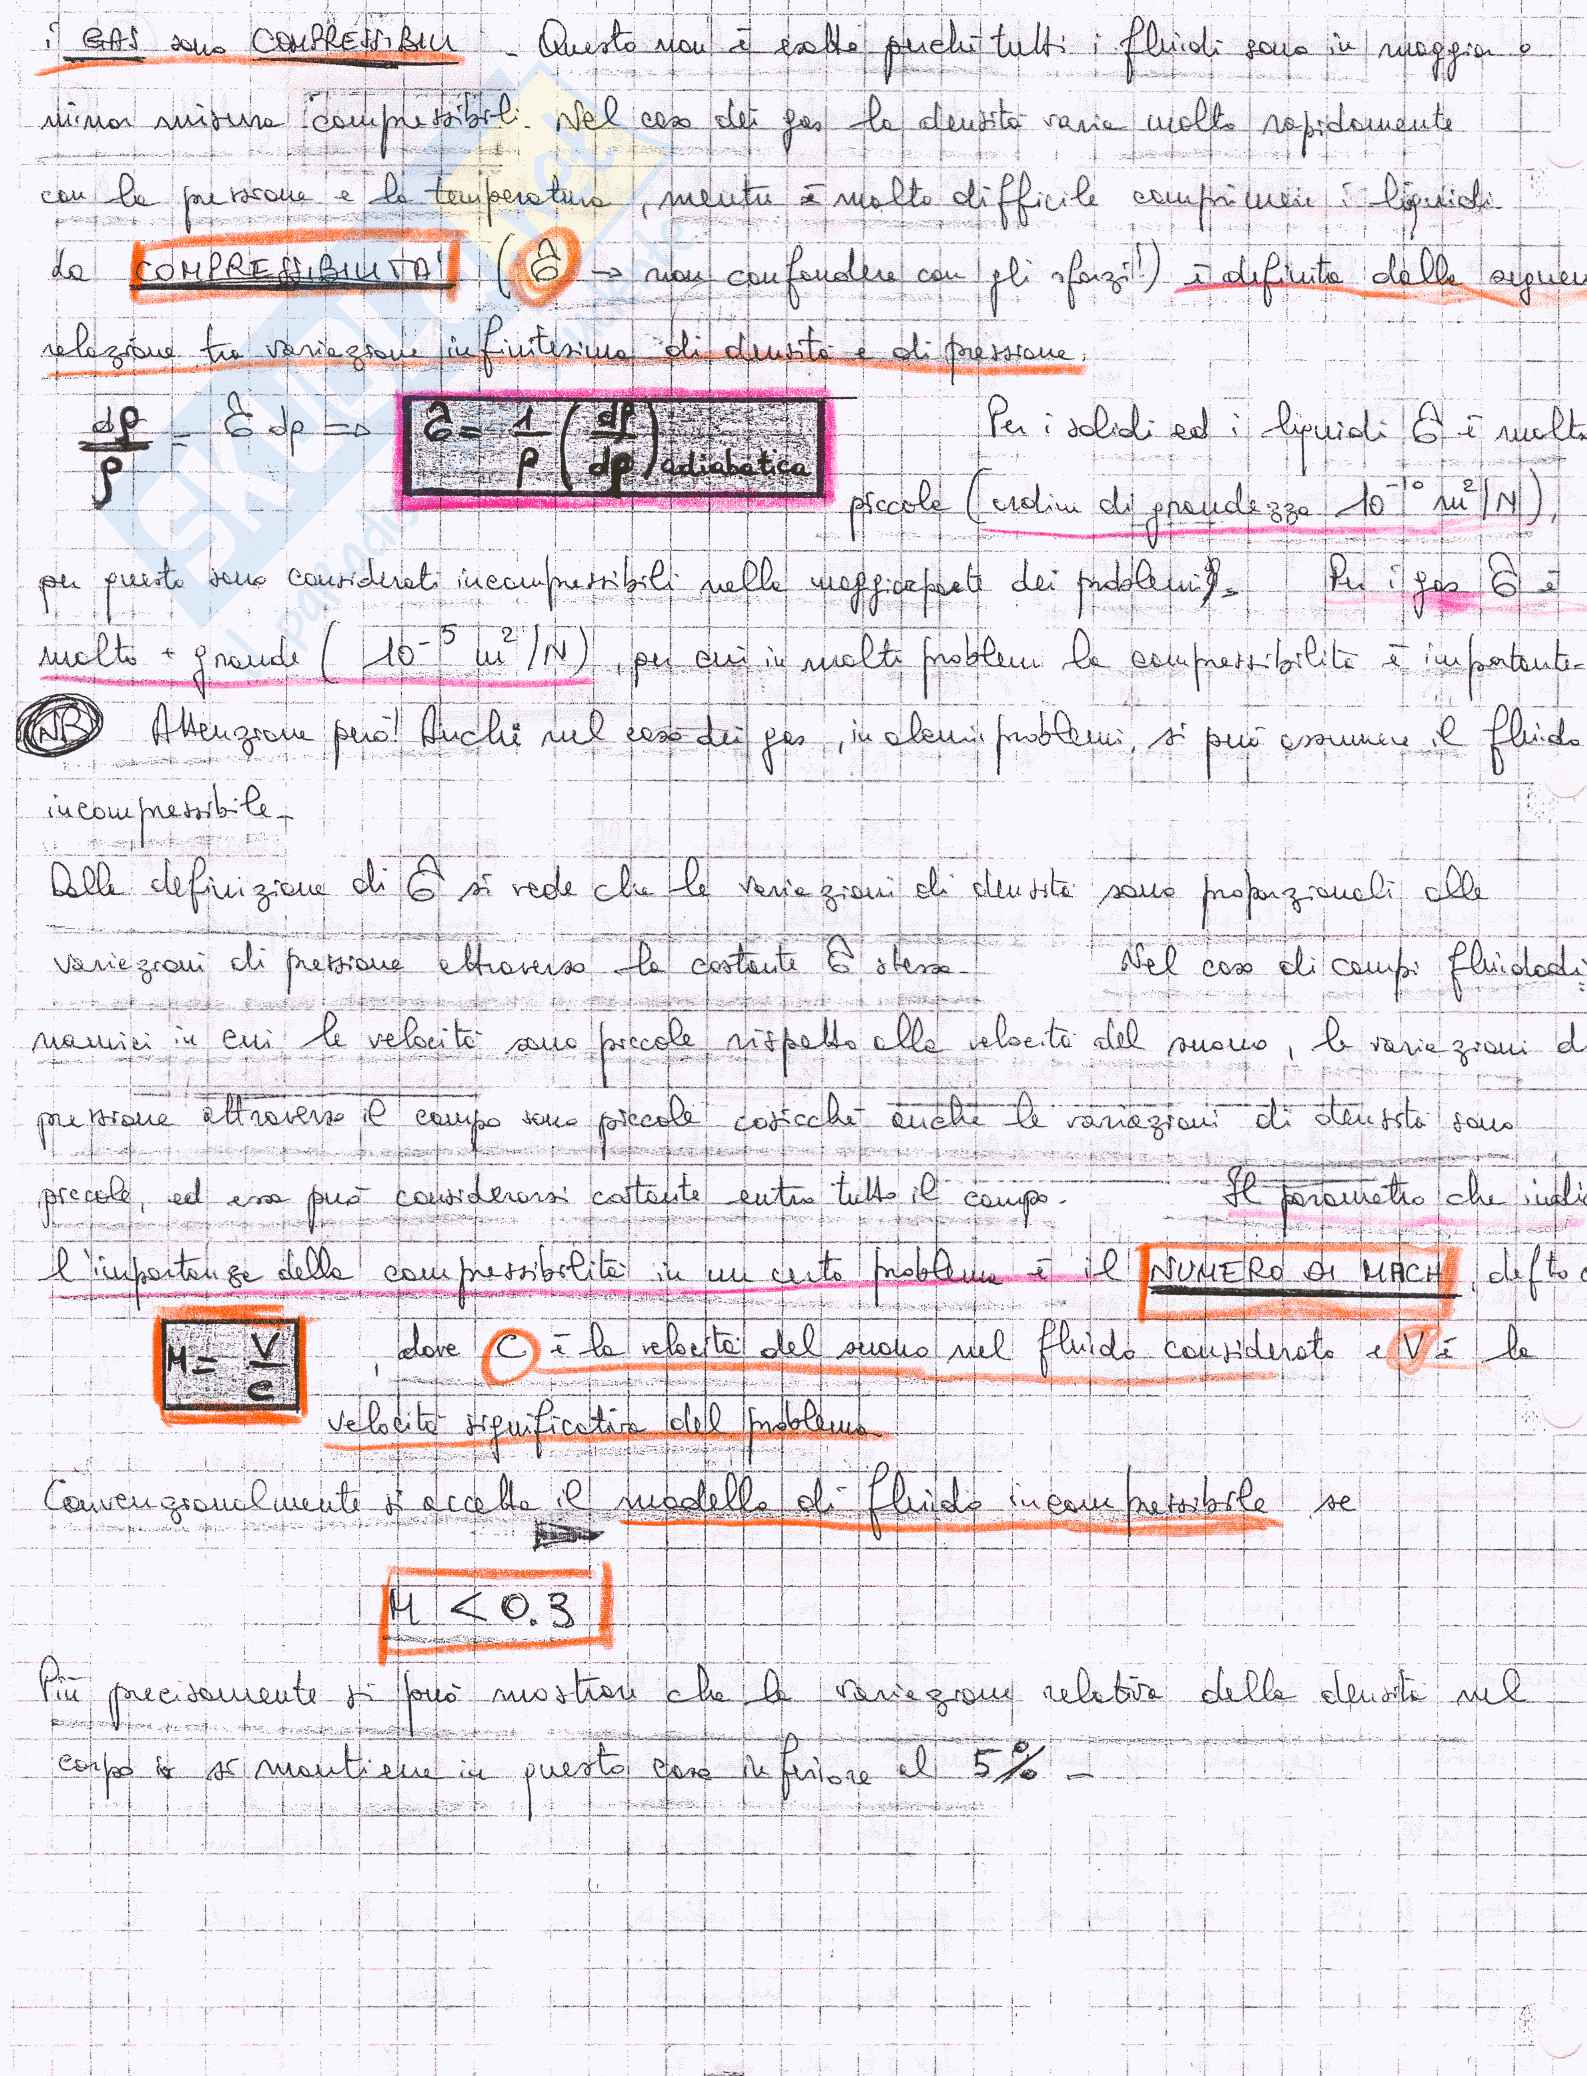 i GAS sono COMPRESSIBILI - Questo non è esatto perché tutti i fluidi sono in maggior o
minor misura compressibili. Nel caso dei gas la densità varia molto rapidamente
con la pressione e la temperatura, mentre è molto difficile comprimere i liquidi.
La COMPRESSIBILITA' (Ĝ → non confondere con gli sforzi!) è definita dalla seguen
relazione tra variazione infinitesima di densità e di pressione.
dρ/ρ = Ĝ dp => Ĝ = 1/ρ (dρ/dp) adiabatica Per i solidi ed i liquidi Ĝ è molto
piccolo (ordine di grandezza 10⁻¹⁰ m²/N),
per questo sono considerati incompressibili nella maggioreparte dei problemi. Per i gas Ĝ è
molto + grande (10⁻⁵ m²/N), per cui in molti problemi la compressibilità è importante-
NB Attenzione però! Anche nel caso dei gas, in alcuni problemi, si può assumere il fluido
incompressibile-
Dalla definizione di Ĝ si vede che le variazioni di densità sono proporzionali alle
variazioni di pressione attraverso la costante Ĝ stessa- Nel caso di campi fluidodi
namici in cui le velocità sono piccole rispetto alla velocità del suono, le variazioni d
pressione attraverso il campo sono piccole cosicché anche le variazioni di densità sono
piccole, ed essa può considerarsi costante entro tutto il campo. Il parametro che indic
l'importanza della compressibilità in un certo problema è il NUMERO DI MACH, defto
M = V/C , dove C è la velocità del suono nel fluido considerato e V è la
velocità significativa del problema
Convenzionalmente si accetta il modello di fluido incompressibile se
M < 0.3
Più precisamente si può mostrare che la variazione relativa della densità nel
corpo si mantiene in questo caso inferiore al 5% -